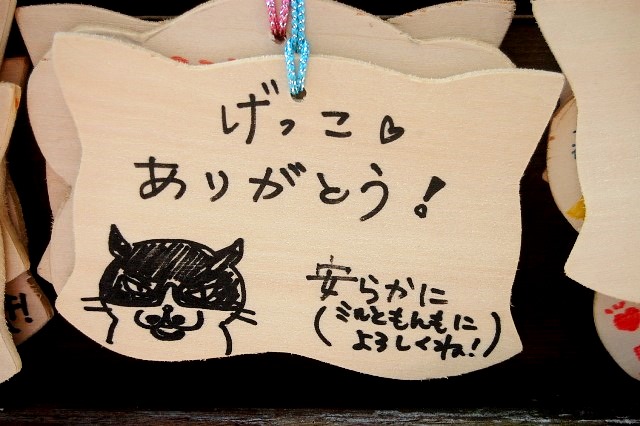 げっこ♡
ありがとう!
安らかに
(ミルともんもに
よろしくね!)